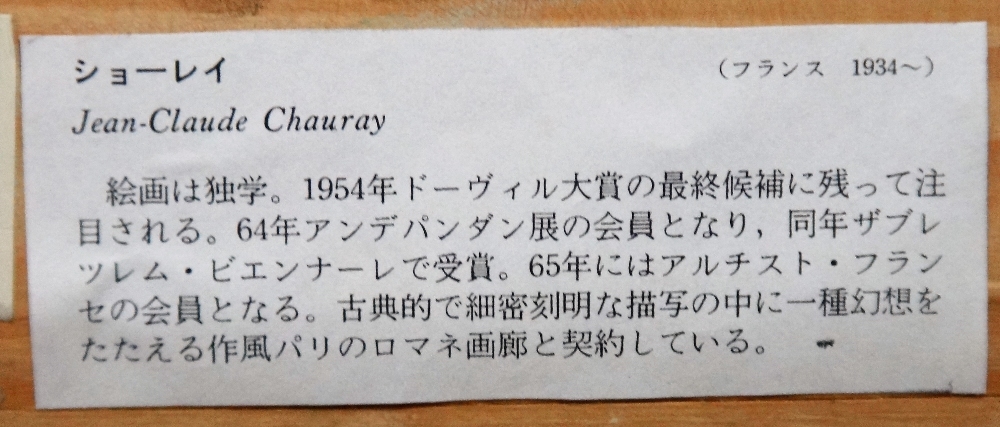 ショーレイ （フランス　1934〜）
Jean-Claude Chauray
絵画は独学。1954年ドーヴィル大賞の最終候補に残って注
目される。64年アンデパンダン展の会員となり，同年ザブレ
ツレム・ビエンナーレで受賞。65年にはアルチスト・フラン
セの会員となる。古典的で細密刻明な描写の中に一種幻想を
たたえる作風パリのロマネ画廊と契約している。